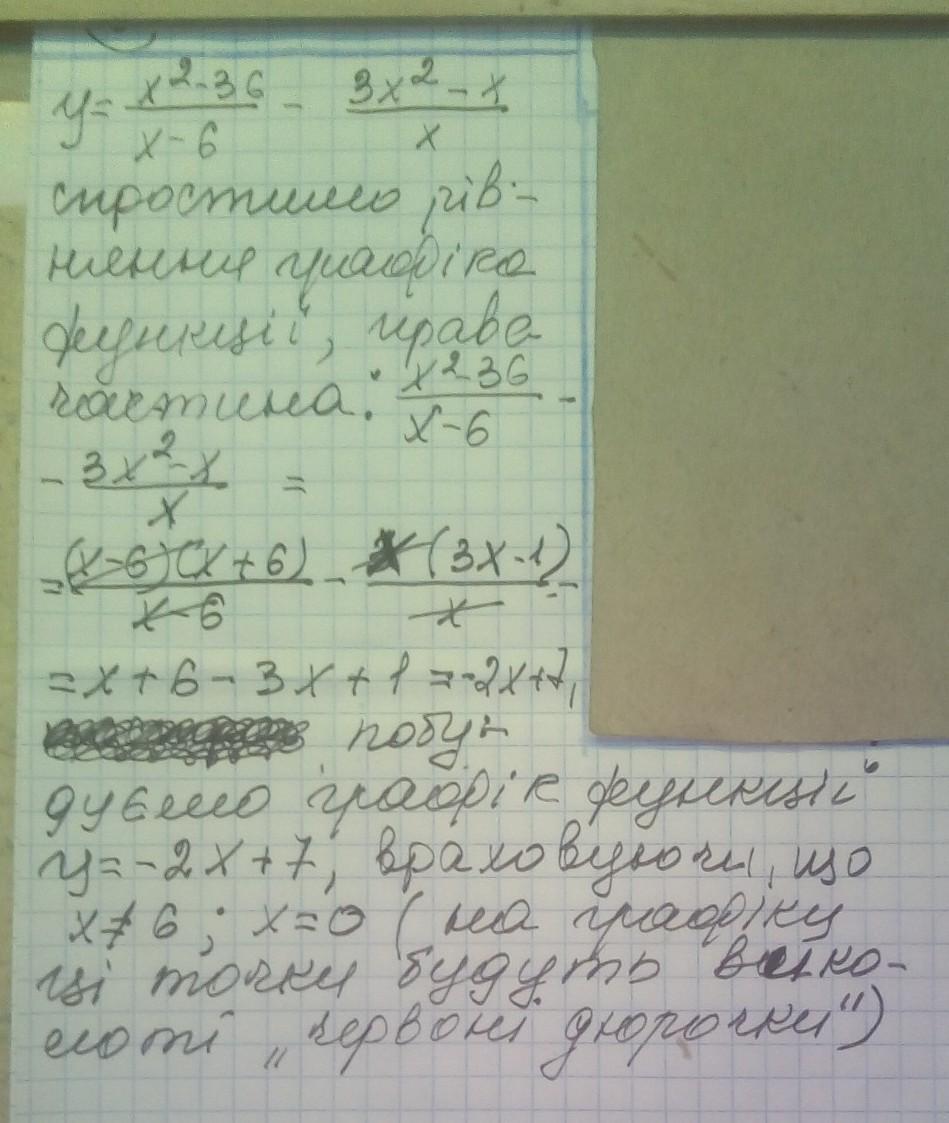 y = (x² - 36)/(x - 6) - (3x² - x)/x
спростимо рів-
няння графіка
функції, права
частина: (x² - 36)/(x - 6) -
- (3x² - x)/x =
= (x - 6)(x + 6)/(x - 6) - x(3x - 1)/x =
= x + 6 - 3x + 1 = -2x + 7,
побу-
дуємо графік функції
y = -2x + 7, враховуючи, що
x ≠ 6 ; x = 0 ( на графіку
ці точки будуть вико-
лоті „червоні дюрочки")